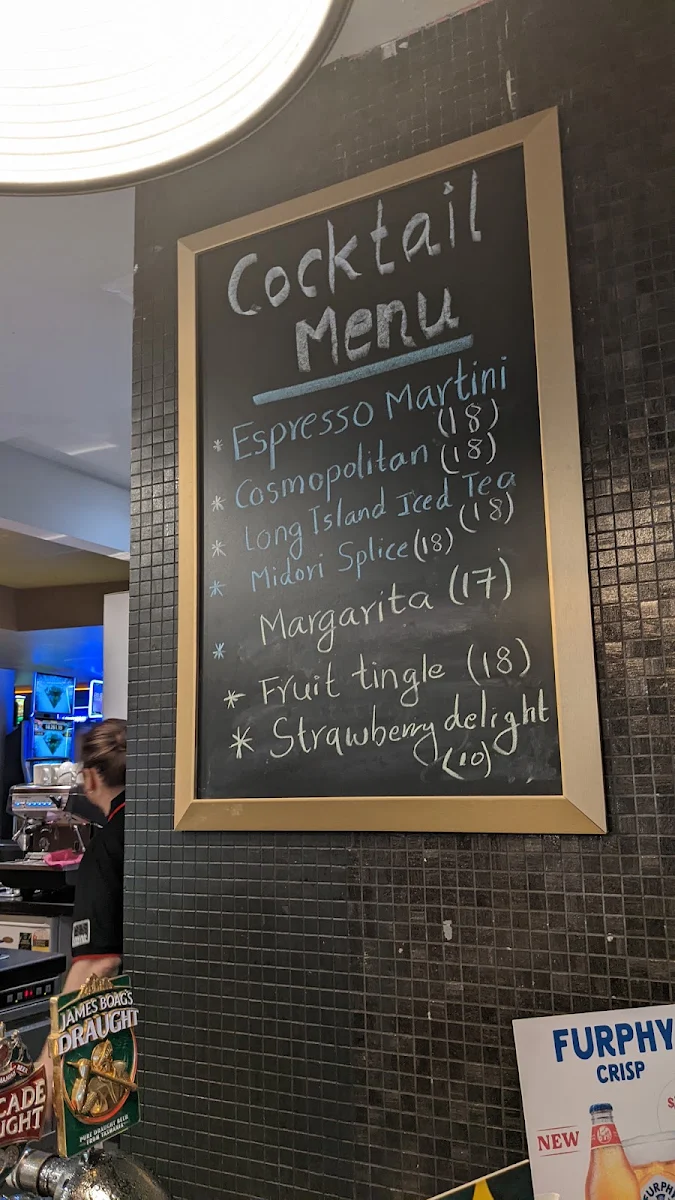 Cocktail
Menu
* Espresso Martini
(18)
* Cosmopolitan (18)
* Long Island Iced Tea
(18)
* Midori Splice (18)
* Margarita (17)
* Fruit tingle (18)
* Strawberry delight
(10)
JAMES BOAG'S
DRAUGHT
PURE DRAUGHT BEER
FROM TASMANIA
FURPHY
CRISP
NEW